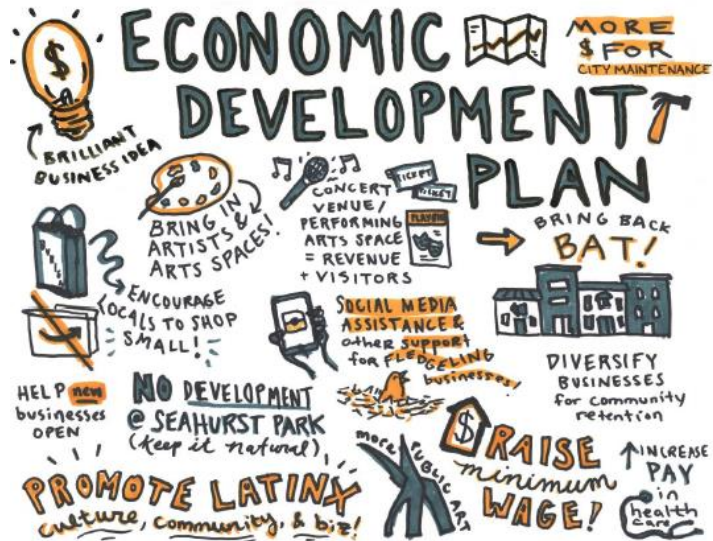 ECONOMIC
DEVELOPMENT
PLAN
MORE
$ FOR
CITY MAINTENANCE
$
BRILLIANT
BUSINESS IDEA
BRING IN
ARTISTS &
ARTS SPACES!
CONCERT
VENUE/
PERFORMING
ARTS SPACE
= REVENUE
+ VISITORS
TICKET
TICKET
PLAYBILL
BRING BACK
BAT!
BURIEN
ENCOURAGE
LOCALS TO SHOP
SMALL!
SOCIAL MEDIA
ASSISTANCE &
other support
for FLEDGELING
businesses!
DIVERSIFY
BUSINESSES
for community
retention
HELP new
businesses
OPEN
NO DEVELOPMENT
@ SEAHURST PARK
(keep it natural)
PROMOTE LATINX
culture, community, & biz!
more PUBLIC ART
$ RAISE
minimum
WAGE!
INCREASE
PAY
in
health
care